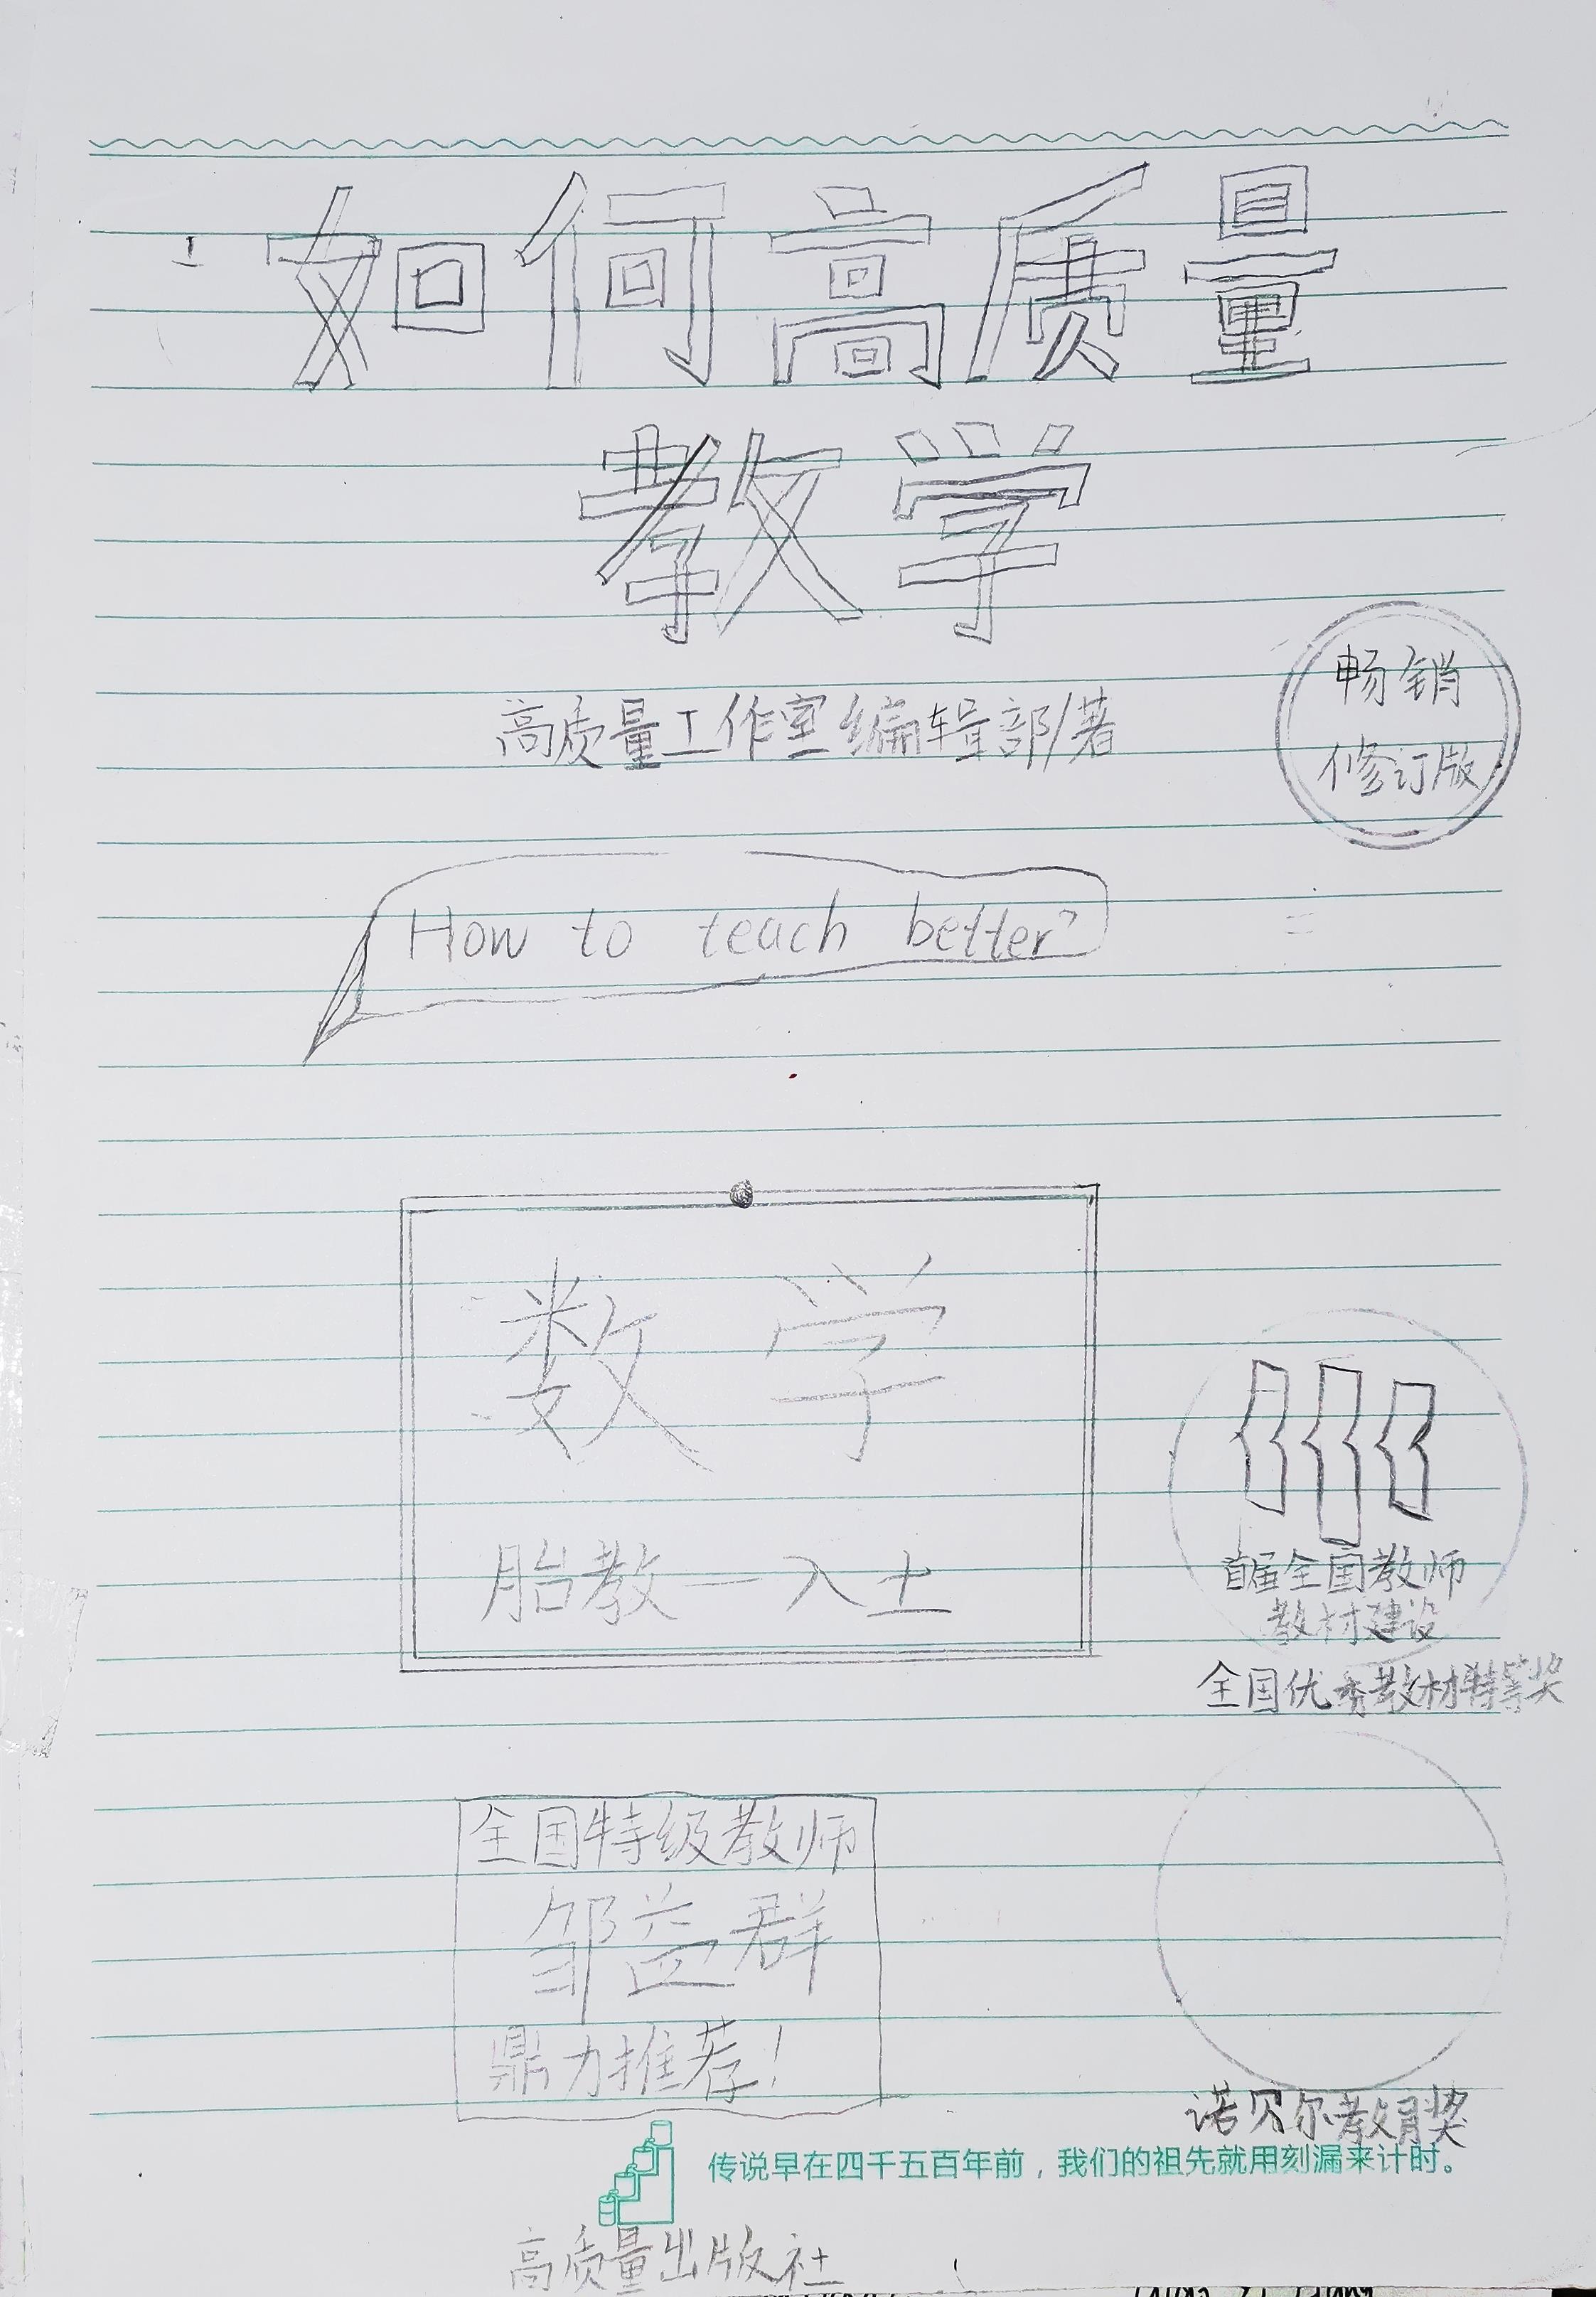 如何高质量
教学
高质量工作室编辑部/著
畅销
修订版
How to teach better?
数学
胎教—入土
首届全国教师
教材建设
全国优秀教材特等奖
全国特级教师
邹益群
鼎力推荐!
诺贝尔教育奖
传说早在四千五百年前，我们的祖先就用刻漏来计时。
高质量出版社